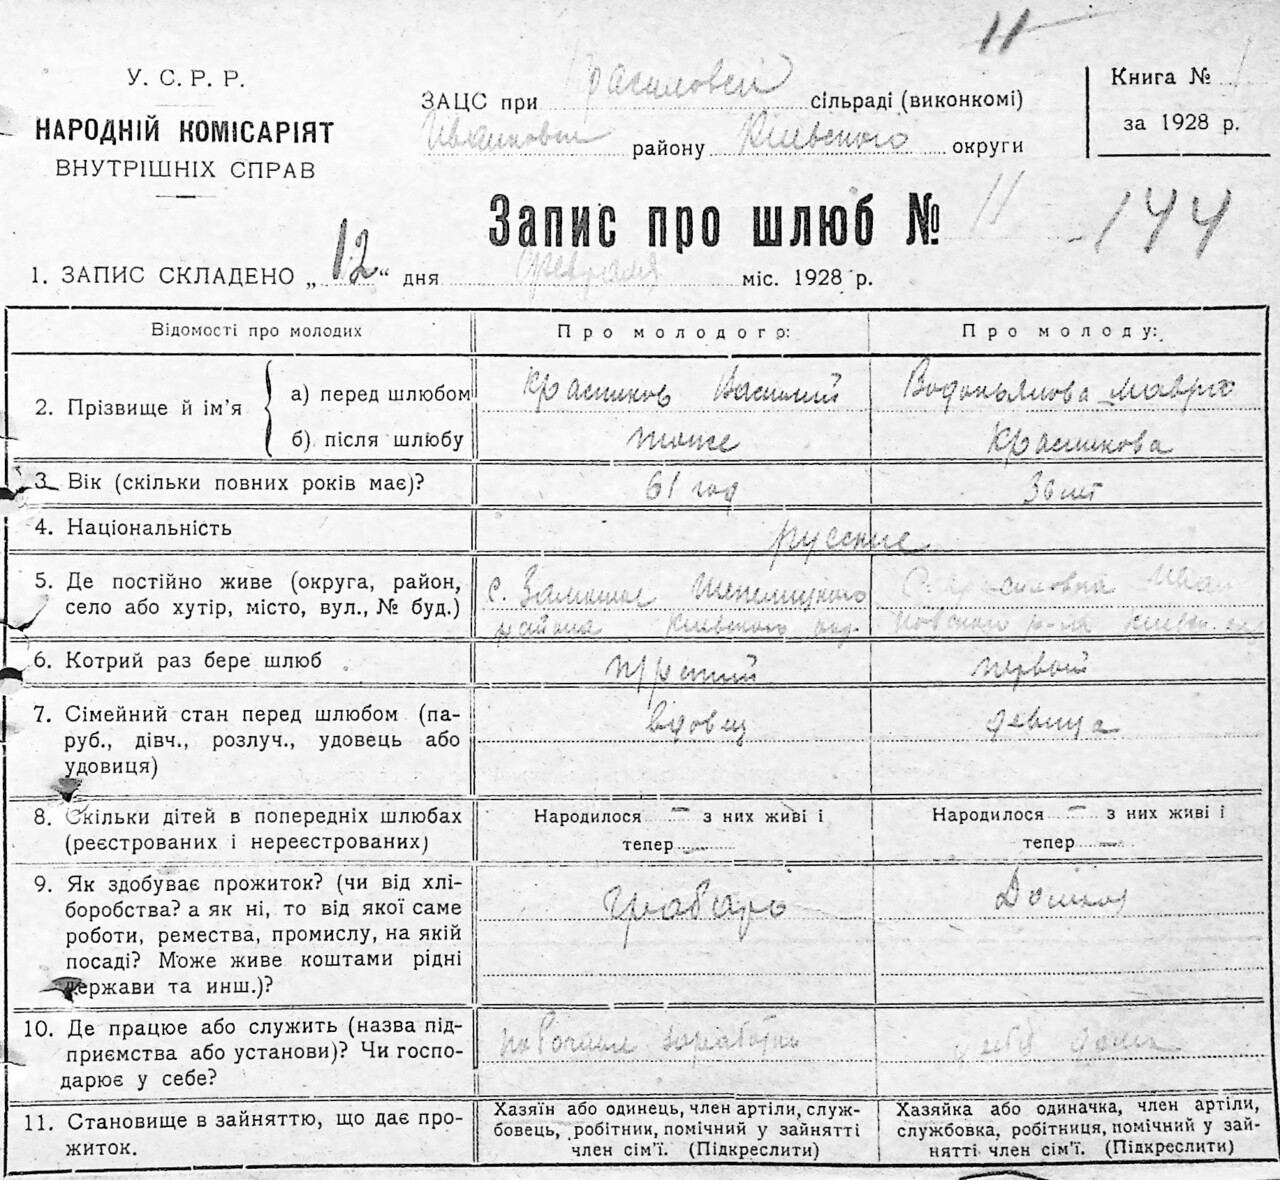 11
У. С. Р. Р.
НАРОДНІЙ КОМІСАРІЯТ
ВНУТРІШНІХ СПРАВ
ЗАЦС при Красиловск сільраді (виконкомі)
району Киевского округи
Книга №
за 1928 р.
Запис про шлюб № 11
144
1. ЗАПИС СКЛАДЕНО „12“ дня февраля міс. 1928 р.
Відомості про молодих
Про молодого:
Про молоду:
2. Прізвище й ім’я
а) перед шлюбом
Красиков Василий
Водопьянова Мавра
б) після шлюбу
тоже
Красикова
3. Вік (скільки повних років має)?
61 год
36 лет
4. Національність
русские
5. Де постійно живе (округа, район,
село або хутір, місто, вул., № буд.)
с. Замошье Шепелицкого
района Киевского окр.
с. Красиловка Иван
ковского р-на Киевск. окр
6. Котрий раз бере шлюб
третий
первый
7. Сімейний стан перед шлюбом (па-
руб., дівч., розлуч., удовець або
удовиця)
вдовец
девица
8. Скільки дітей в попередніх шлюбах
(реєстрованих і нереєстрованих)
Народилося — з них живі і
тепер —
Народилося — з них живі і
тепер —
9. Як здобуває прожиток? (чи від хлі-
боробства? а як ні, то від якої саме
роботи, ремества, промислу, на якій
посаді? Може живе коштами рідні
держави та инш.)?
грабарь
10. Де працює або служить (назва під-
приємства або установи)? Чи госпо-
дарює у себе?
11. Становище в зайняттю, що дає про-
житок.
Хазяїн або одинець, член артіли, служ-
бовець, робітник, помічний у зайнятті
член сім’ї. (Підкреслити)
Хазяйка або одиначка, член артіли,
службовка, робітниця, помічний у зай-
нятті член сім’ї. (Підкреслити)